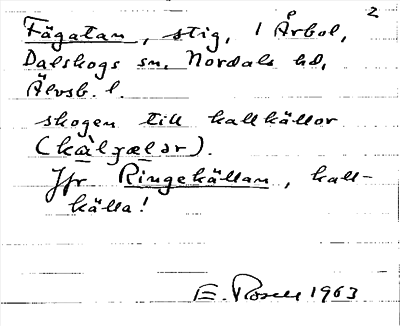 2
Fägatan, stig, i Årbol,
Dalskogs sn, Nordals hd,
Älvsb. l.
skogen till kallkällor
(kàlʒælər).
Jfr Ringekällan, kall-
källa!
E. Rosell 1963